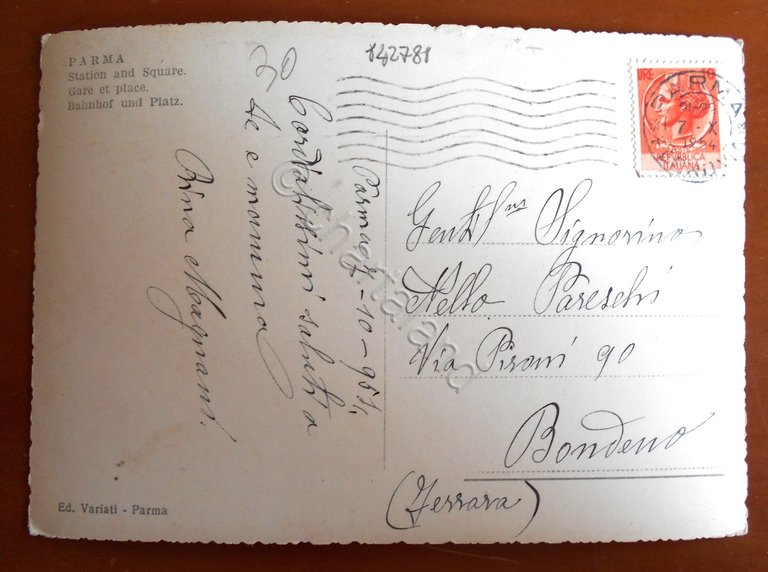 PARMA
Station and Square.
Gare et place.
Bahnhof und Platz.
142781
LIRE 10
PARMA
7 X
1954
REPUBBLICA
ITALIANA
Parma 7-10-954
Cordialissimi saluti a
te e mamma
Rina Magnani.
Gentil.ma Signorina
Nella Pareschi
Via Pironi 90
Bondeno
(Ferrara)
Ed. Variati - Parma
© Chartaland